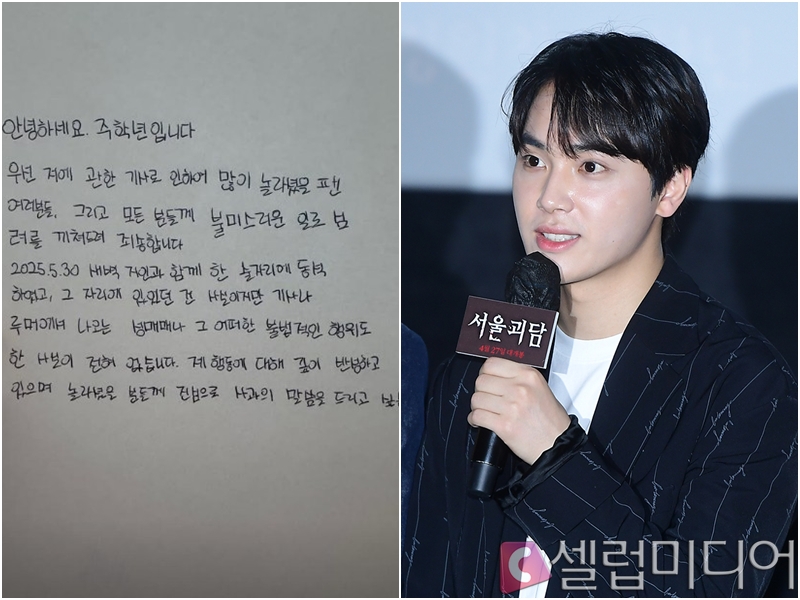 안녕하세요. 주학년입니다
우선 저에 관한 기사로 인하여 많이 놀라셨을 팬
여러분들, 그리고 모든 분들께 불미스러운 일로 심
려를 끼쳐드려 죄송합니다
2025.5.30 새벽 지인과 함께 한 술자리에 동석
하였고, 그 자리에 있었던 건 사실이지만 기사나
루머에서 나오는 성매매나 그 어떠한 불법적인 행위도
한 사실이 전혀 없습니다. 제 행동에 대해 깊이 반성하고
있으며 놀라셨을 분들께 진심으로 사과의 말씀을 드리고
서울괴담
4월 27일 대개봉
셀럽미디어